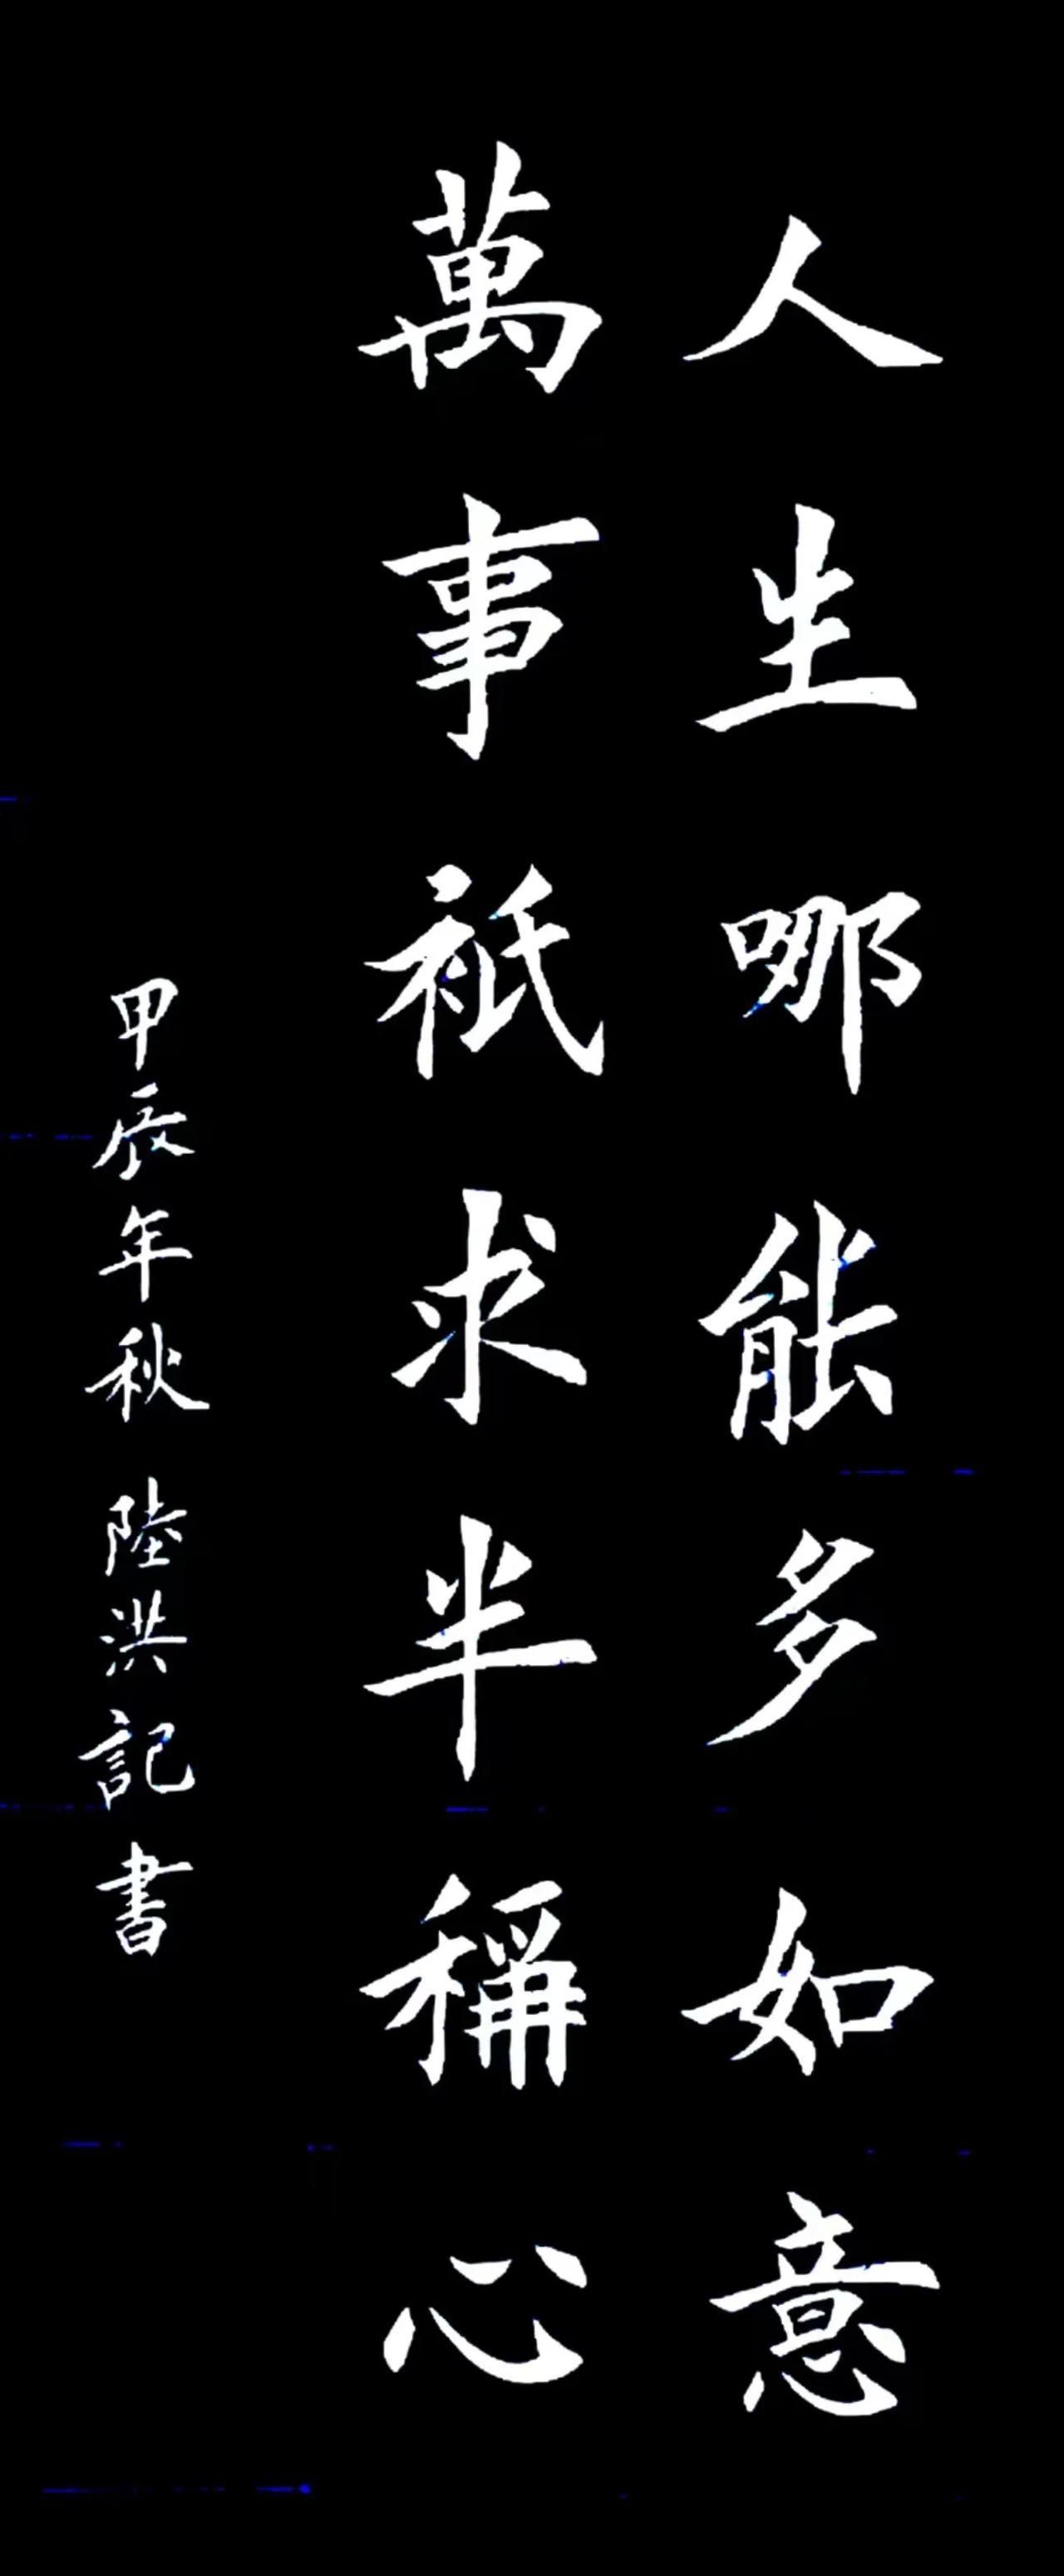 人生哪能多如意
萬事祇求半稱心
甲辰年秋 陸洪記書